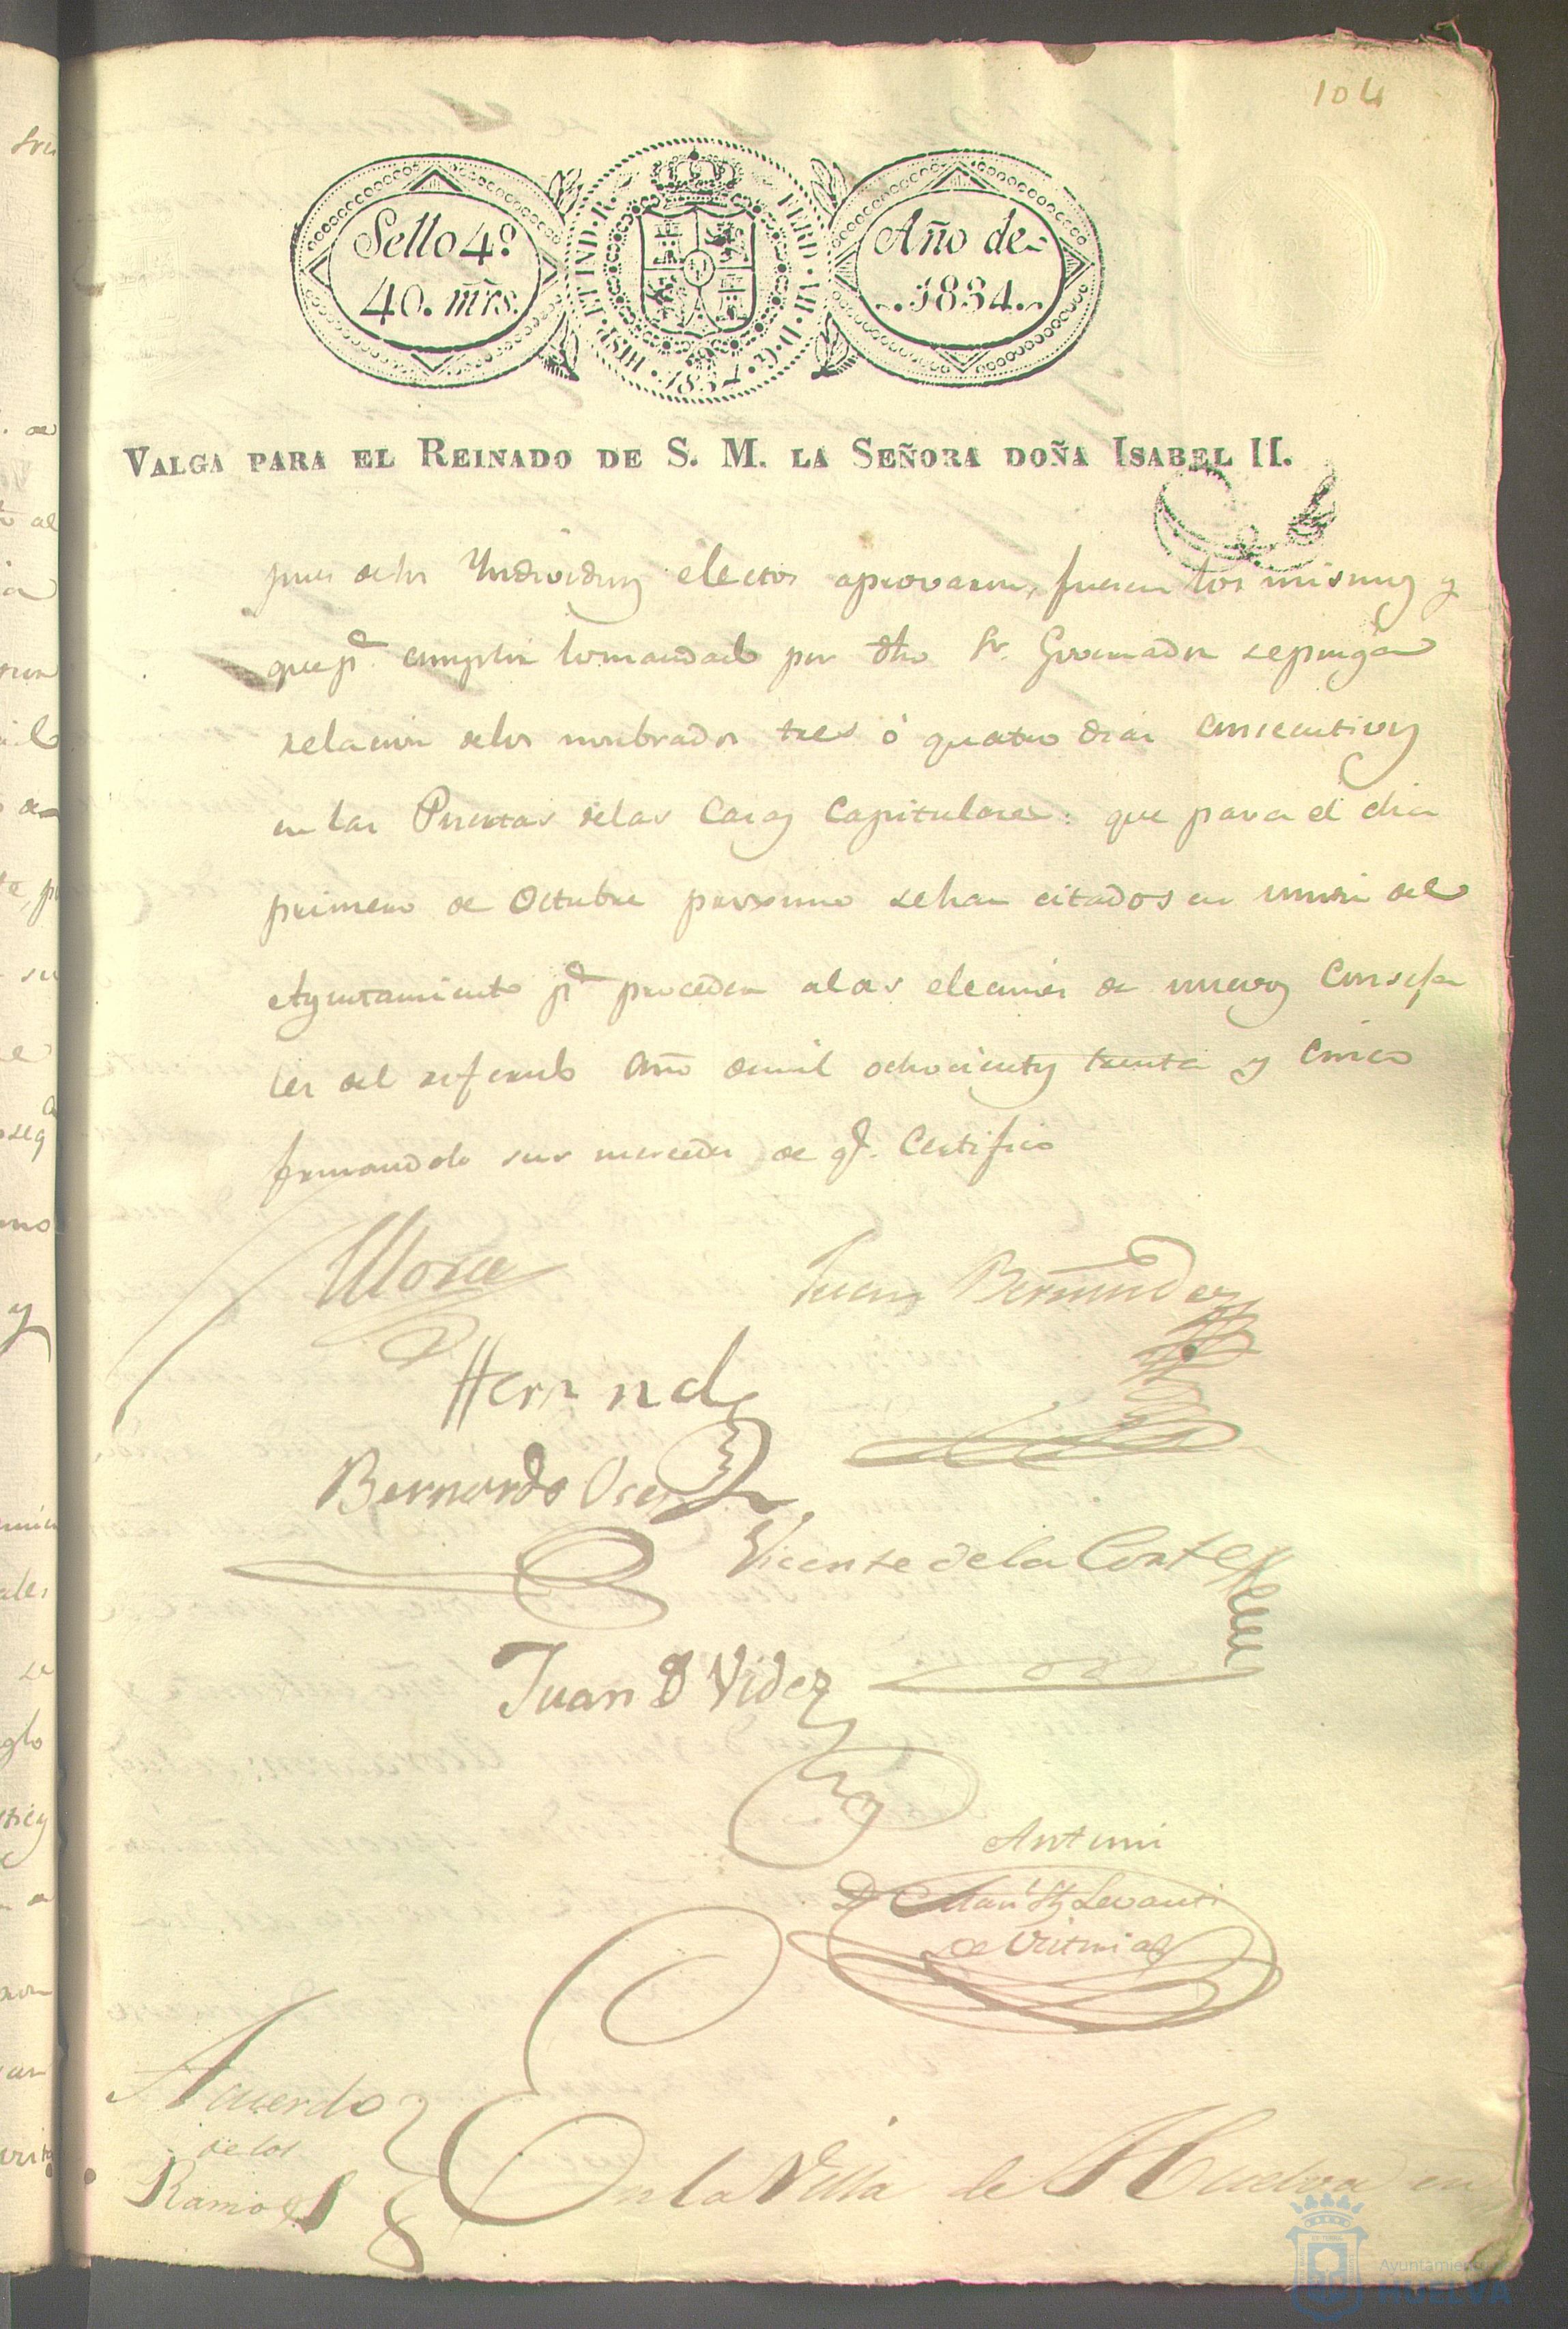 104
Sello 4º
40. mrs.
HISP. ET IND. R. FERD. VII. D. G. 1834.
Año de
1834.
VALGA PARA EL REINADO DE S. M. LA SEÑORA DOÑA ISABEL II.
pues delos Yndividuos electos aprovaron, fueran los mismos y
que pª cumplir lo mandado por dho Sr. Governador se ponga
relacion delos nombrados tres ó quatro dias consecutivos
en las Puertas delas Casas Capitulares: que para el dia
primero de Octubre proximo sehan citados en union del
Ayuntamiento pª proceder alas elecciones de nuevos Conseja
les del referido Año demil ochocientos treinta y cinco
firmandolo sus mercedes de qe. Certifico
Mora
Juan Bermudez
Hernndz
Bernardo
Vicente dela Corte
Juan Videz
Ante mi
D Manl Levanti
de
Acuerdo
de los
Ramos
En la Villa de Huelva en
Ayuntamiento
HUELVA